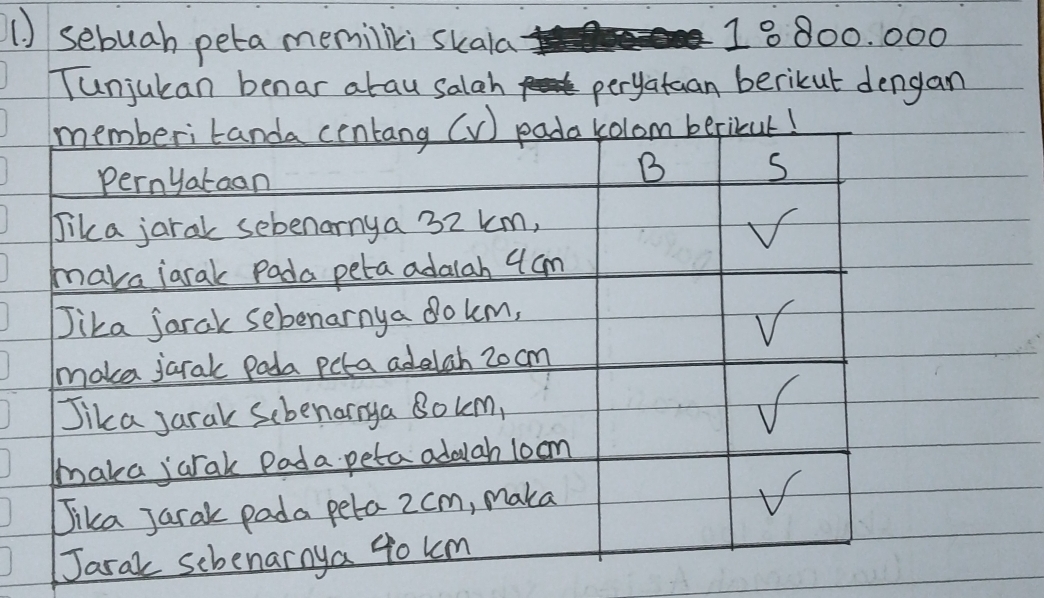 1.) Sebuah peta memiliki skala 1:800.000
Tunjukan benar atau salah peryataan berikut dengan
memberi tanda centang (v) pada kolom berikut!
Pernyataan B S
Jika jarak sebenarnya 32 km, ✓
maka jarak pada peta adalah 4 cm
Jika jarak sebenarnya 80 km, ✓
maka jarak pada peta adalah 20 cm
Jika jarak sebenarnya 80 km, ✓
maka jarak pada peta adalah 10 cm
Jika jarak pada peta 2 cm, maka ✓
Jarak sebenarnya 40 km